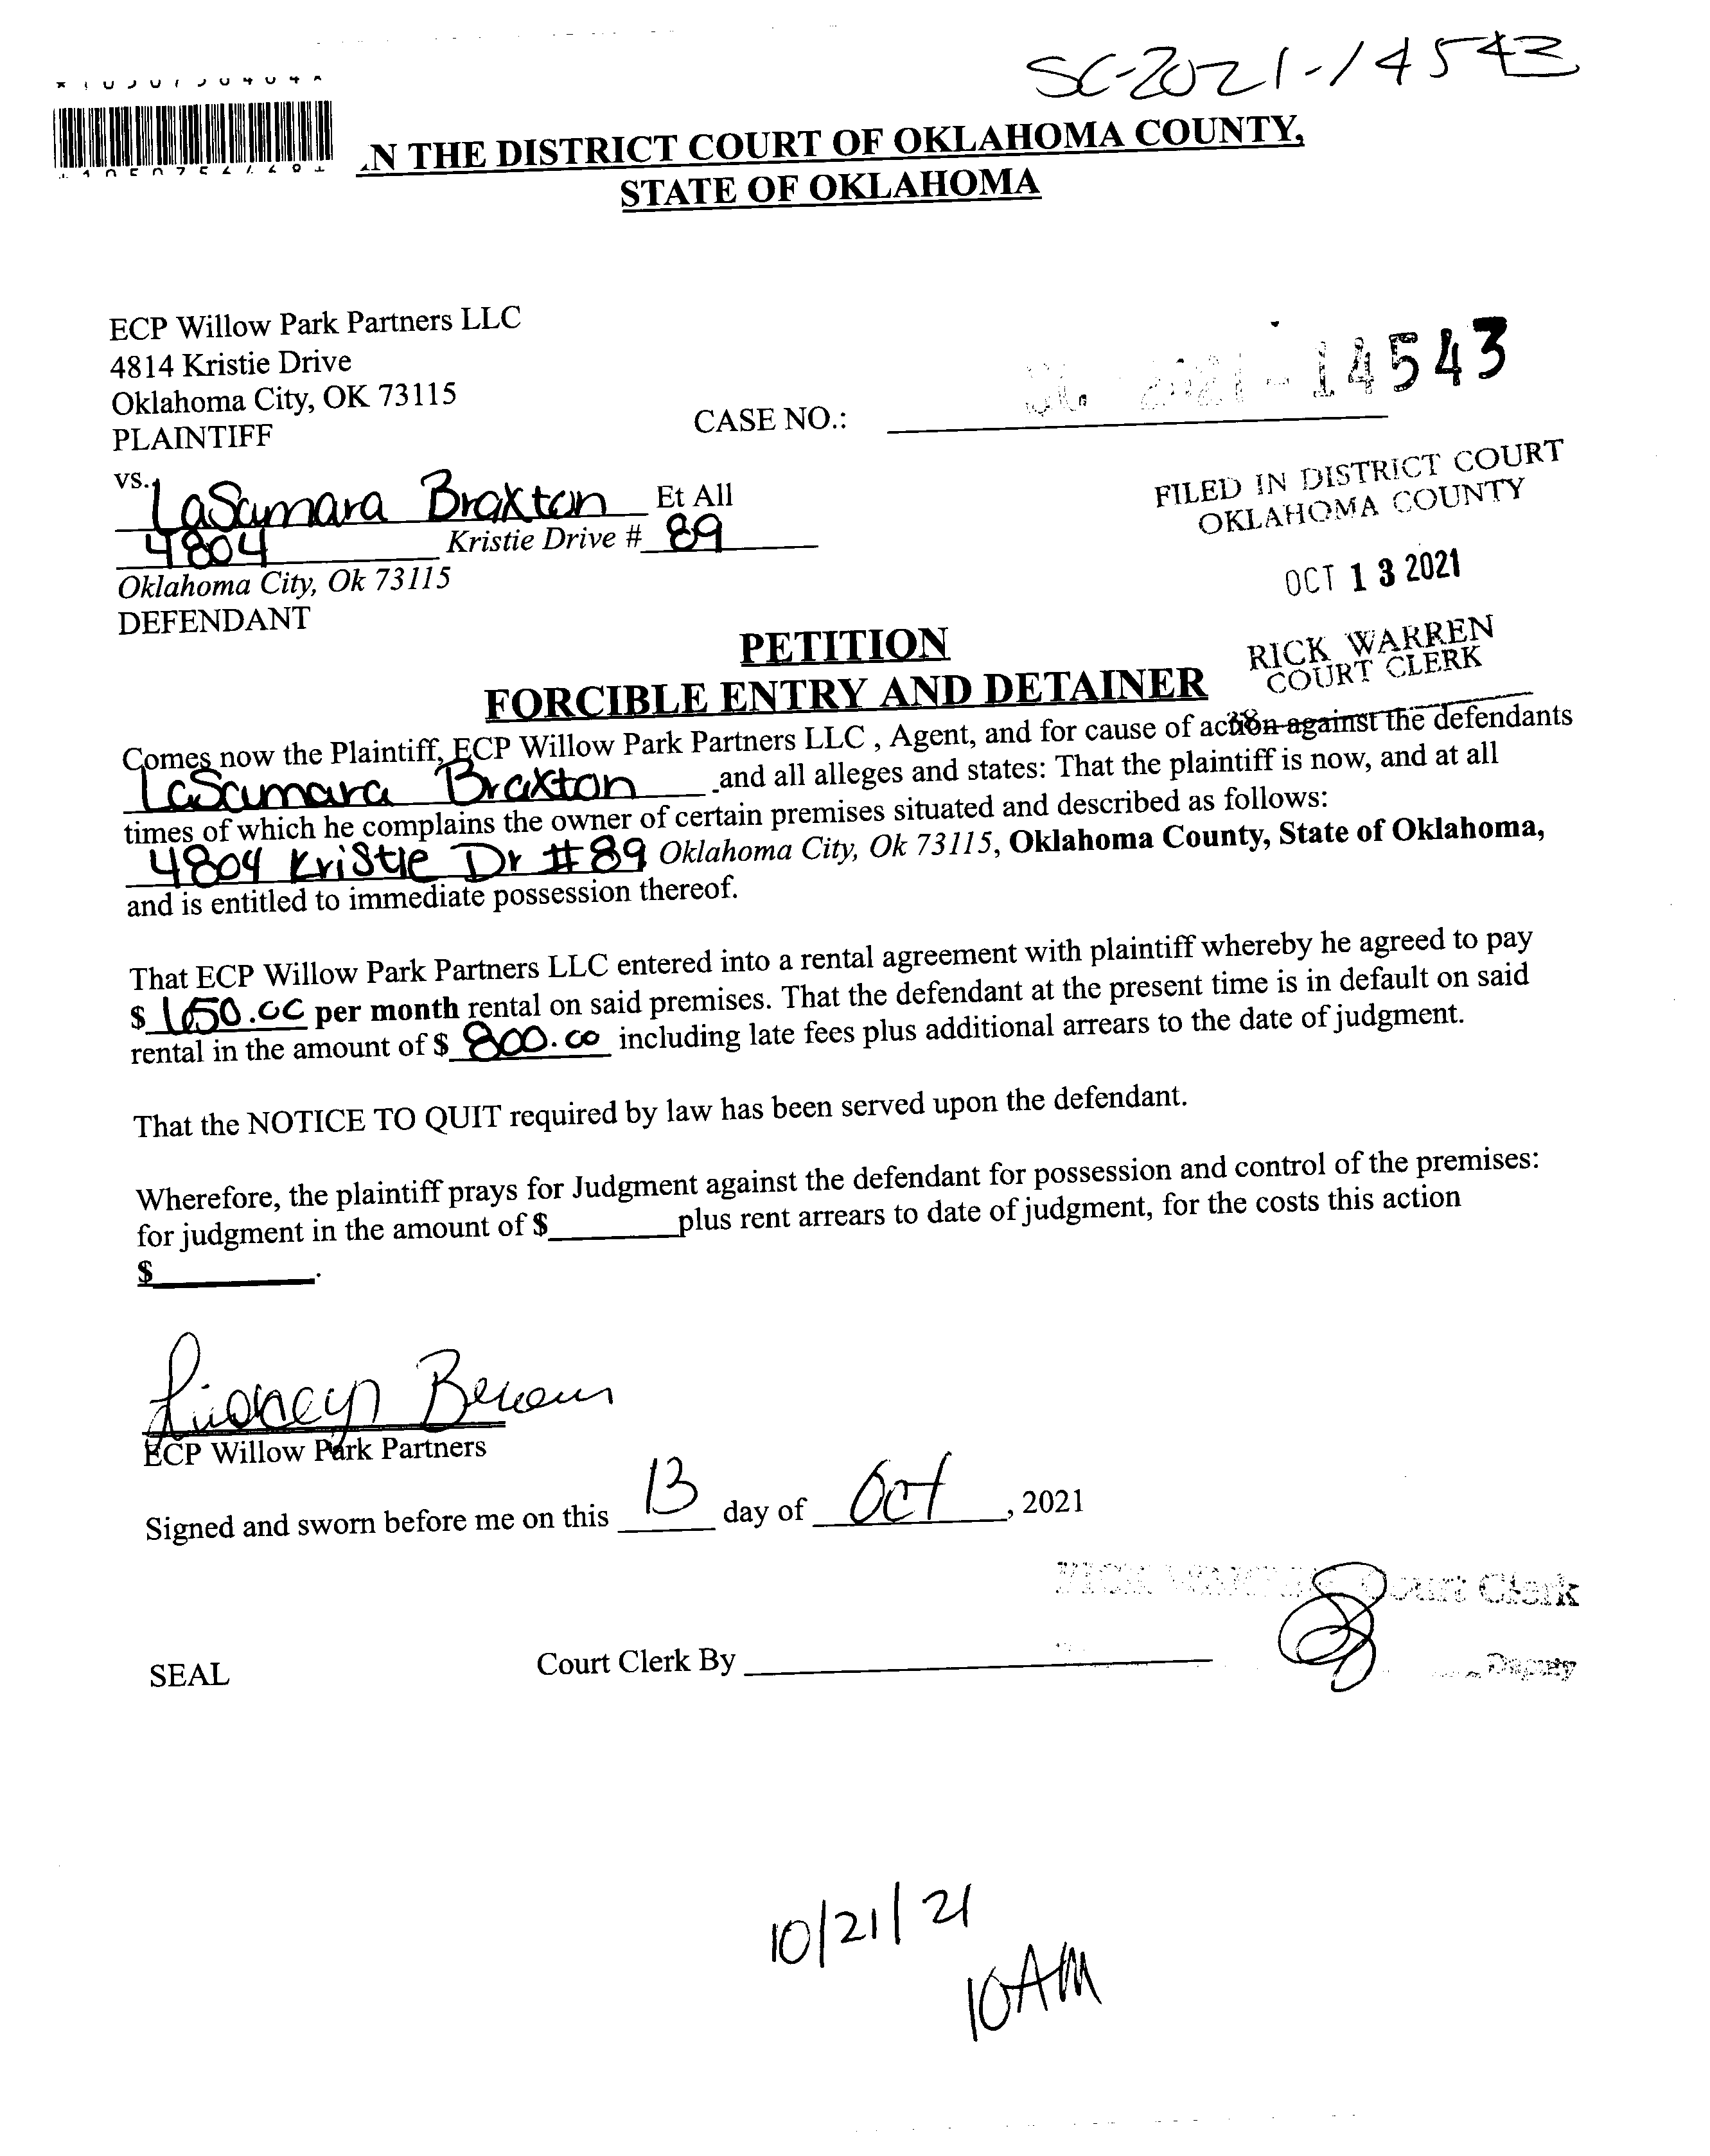 SC-2021-14543
IN THE DISTRICT COURT OF OKLAHOMA COUNTY,
STATE OF OKLAHOMA
ECP Willow Park Partners LLC
4814 Kristie Drive
Oklahoma City, OK 73115
PLAINTIFF
CASE NO.: SC 2021-14543
vs.
LaSamara Braxton Et All
4804 Kristie Drive # 89
Oklahoma City, Ok 73115
DEFENDANT
FILED IN DISTRICT COURT
OKLAHOMA COUNTY
OCT 13 2021
RICK WARREN
COURT CLERK
38
PETITION
FORCIBLE ENTRY AND DETAINER
Comes now the Plaintiff, ECP Willow Park Partners LLC , Agent, and for cause of action against the defendants
LaSamara Braxton and all alleges and states: That the plaintiff is now, and at all
times of which he complains the owner of certain premises situated and described as follows:
4804 Kristie Dr #89 Oklahoma City, Ok 73115, Oklahoma County, State of Oklahoma,
and is entitled to immediate possession thereof.
That ECP Willow Park Partners LLC entered into a rental agreement with plaintiff whereby he agreed to pay
$ 650.00 per month rental on said premises. That the defendant at the present time is in default on said
rental in the amount of $ 800.00 including late fees plus additional arrears to the date of judgment.
That the NOTICE TO QUIT required by law has been served upon the defendant.
Wherefore, the plaintiff prays for Judgment against the defendant for possession and control of the premises:
for judgment in the amount of $ plus rent arrears to date of judgment, for the costs this action
$ .
ECP Willow Park Partners
Signed and sworn before me on this 13 day of Oct, 2021
RICK WARREN Court Clerk
SEAL
Court Clerk By
Deputy
10/21/21
10AM